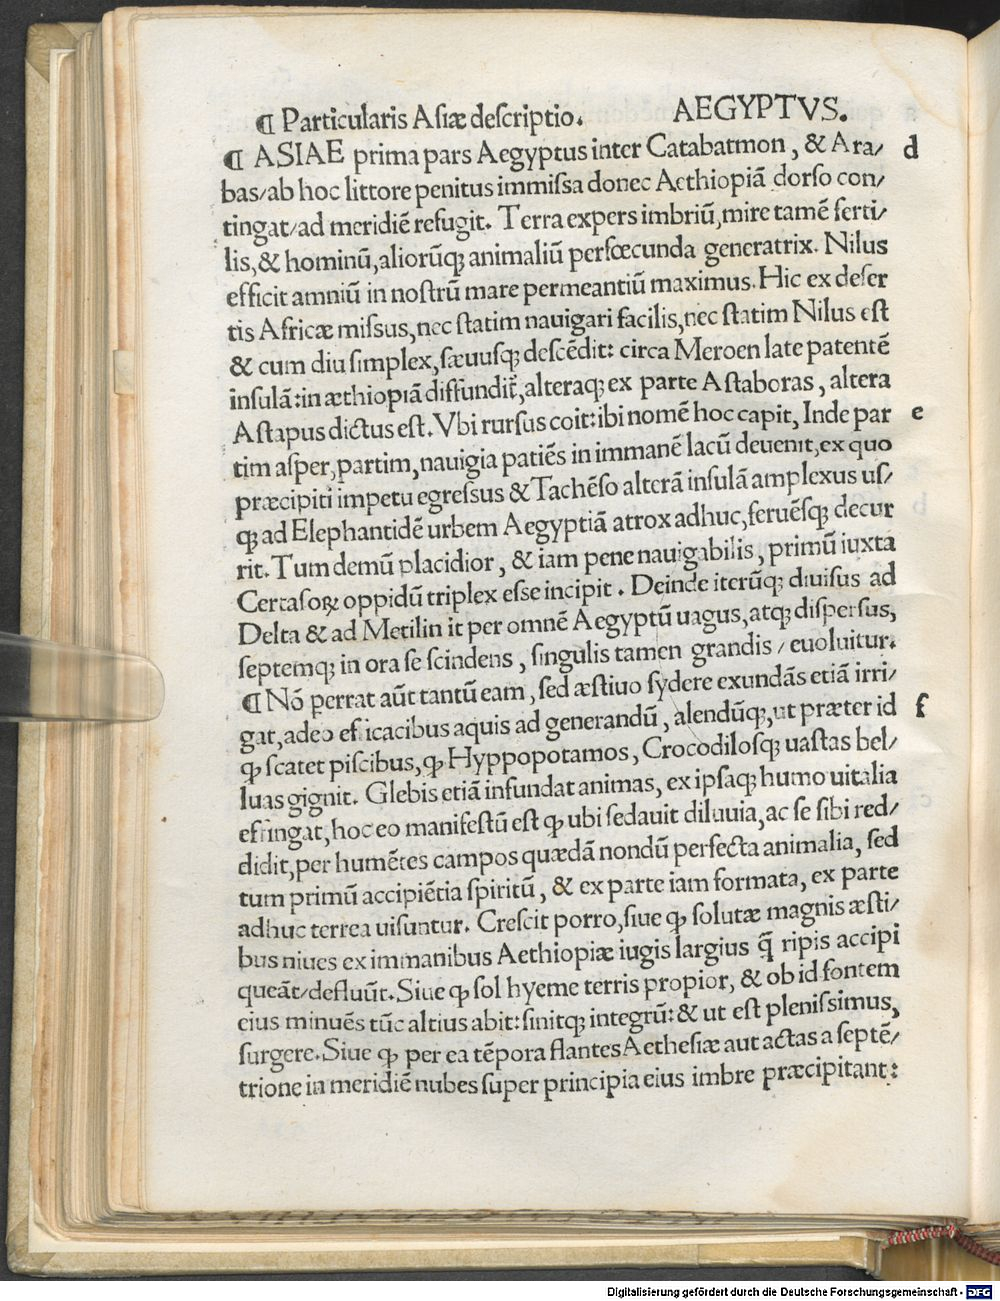 ¶ Particularis Asiæ descriptio. AEGYPTVS.
¶ ASIAE prima pars Aegyptus inter Catabatmon, & Ara/ d
bas/ab hoc littore penitus immissa donec Aethiopiā dorso con/
tingat/ad meridiē refugit. Terra expers imbriū, mire tamē ferti/
lis, & hominū, aliorūq; animaliū perfœcunda generatrix. Nilus
efficit amniū in nostrū mare permeantiū maximus. Hic ex deser
tis Africæ missus, nec statim nauigari facilis, nec statim Nilus est
& cum diu simplex, sæuusq; descēdit: circa Meroen late patentē
insulā: in æthiopiā diffundit̄, alteraq; ex parte Astaboras, altera
Astapus dictus est. Vbi rursus coit: ibi nomē hoc capit, Inde par e
tim asper, partim, nauigia patiēs in immanē lacū deuenit, ex quo
præcipiti impetu egressus & Tachēso alterā insulā amplexus us/
q; ad Elephantidē urbem Aegyptiā atrox adhuc, feruēsq; decur
rit. Tum demū placidior, & iam pene nauigabilis, primū iuxta
Certasoꝝ oppidū triplex esse incipit. Deinde iterūq; diuisus ad
Delta & ad Metilin it per omnē Aegyptū uagus, atq; dispersus,
septemq; in ora se scindens, singulis tamen grandis / euoluitur.
¶ Nō perrat aūt tantū eam, sed æstiuo sydere exundās etiā irri/
gat, adeo efficacibus aquis ad generandū, alendūq;, ut præter id f
ꝙ scatet piscibus, ꝙ Hyppopotamos, Crocodilosq; uastas bel/
luas gignit. Glebis etiā infundat animas, ex ipsaq; humo uitalia
effingat, hoc eo manifestū est ꝙ ubi sedauit diluuia, ac se sibi red/
didit, per humētes campos quædā nondū perfecta animalia, sed
tum primū accipiētia spiritū, & ex parte iam formata, ex parte
adhuc terrea uisuntur. Crescit porro, siue ꝙ solutæ magnis æsti/
bus niues ex immanibus Aethiopiæ iugis largius q̄ ripis accipi
queāt/defluūt. Siue ꝙ sol hyeme terris propior, & ob id fontem
eius minuēs tūc altius abit: sinitq; integrū: & ut est plenissimus,
surgere. Siue ꝙ per ea tēpora flantes Aethesiæ aut actas a septē/
trione in meridiē nubes super principia eius imbre præcipitant:
Digitalisierung gefördert durch die Deutsche Forschungsgemeinschaft - DFG